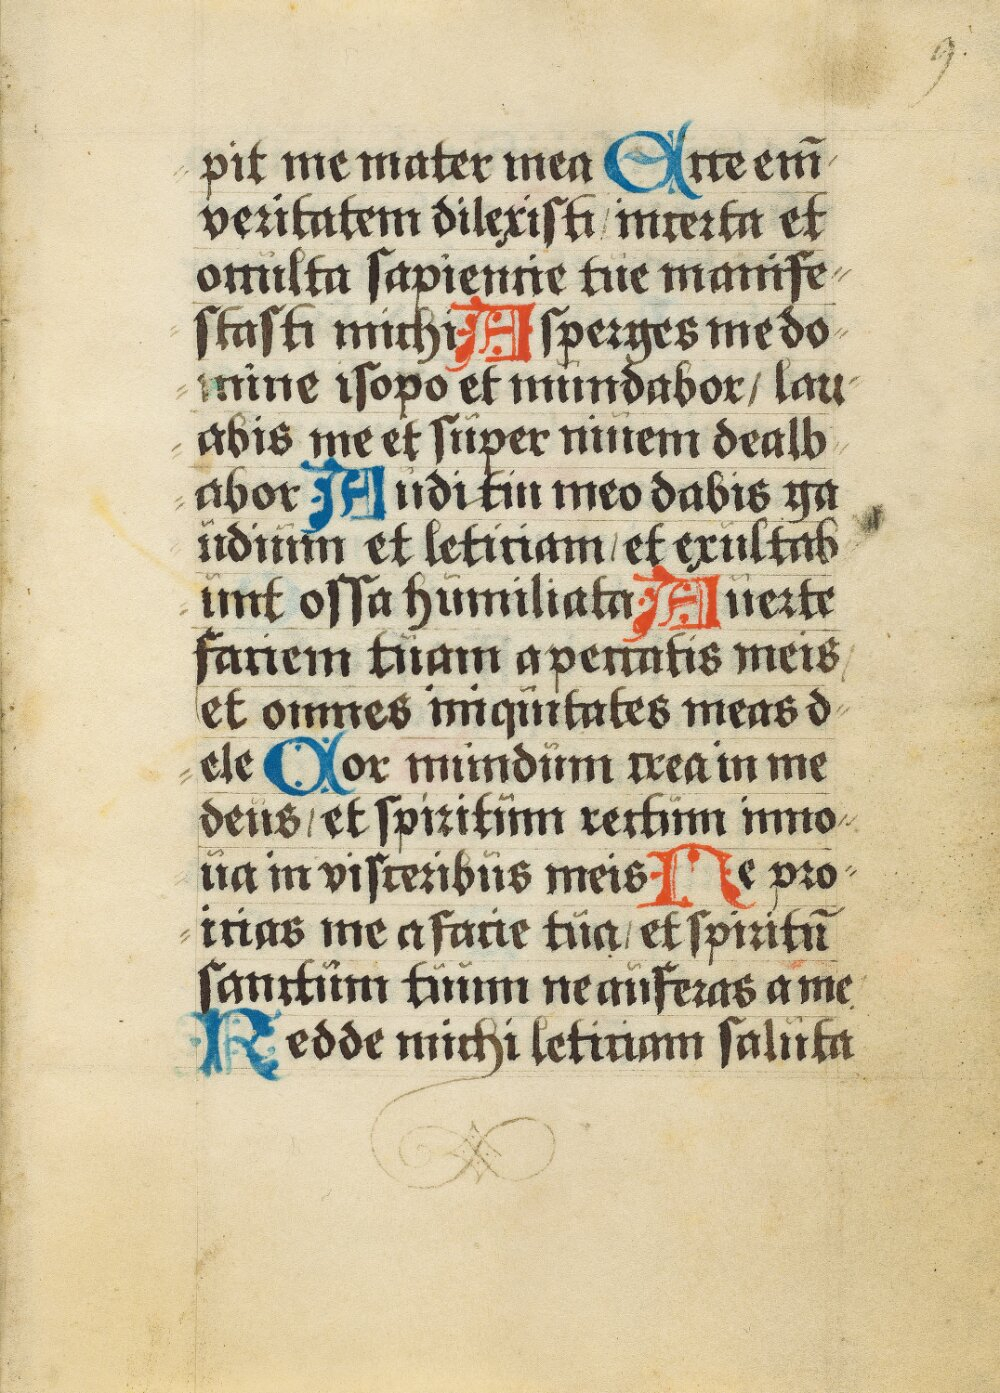 9.
pit me mater mea Ecce em̄
veritatem dilexisti / incerta et
occulta sapiencie tue manife„
stasti michi Asperges me do„
mine isopo et mundabor / lau„
abis me et super nivem dealb„
abor Auditui meo dabis ga
udium et leticiam / et exultab
unt ossa humiliata Auerte
faciem tuam a peccatis meis /
et omnes iniquitates meas d„
ele Cor mundum crea in me
deus / et spiritum rectum inno„
ua in visceribus meis Ne pro„
icias me a facie tua / et spiritū
sanctum tuum ne auferas a me
Redde michi leticiam saluta